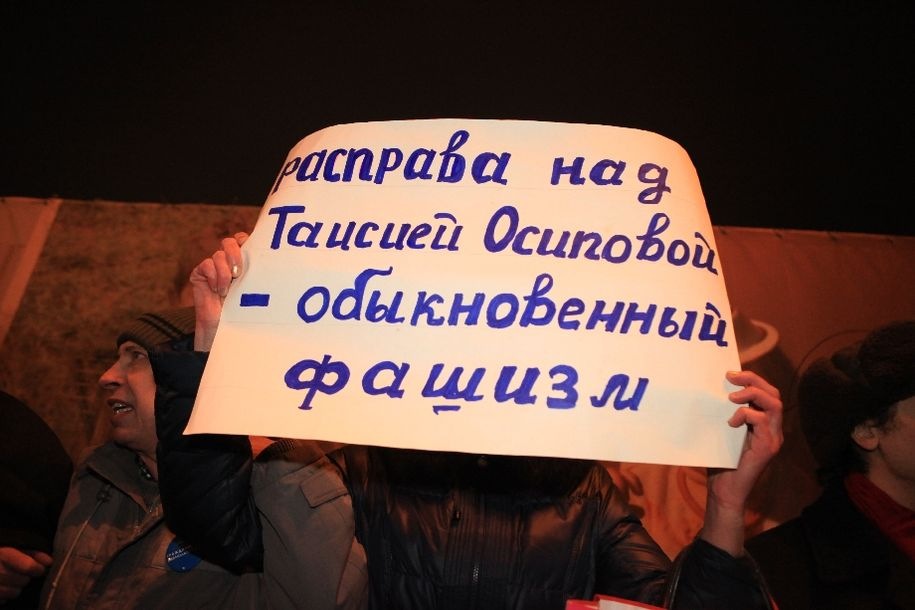 расправа над
Таисией Осиповой
- обыкновенный
фашизм